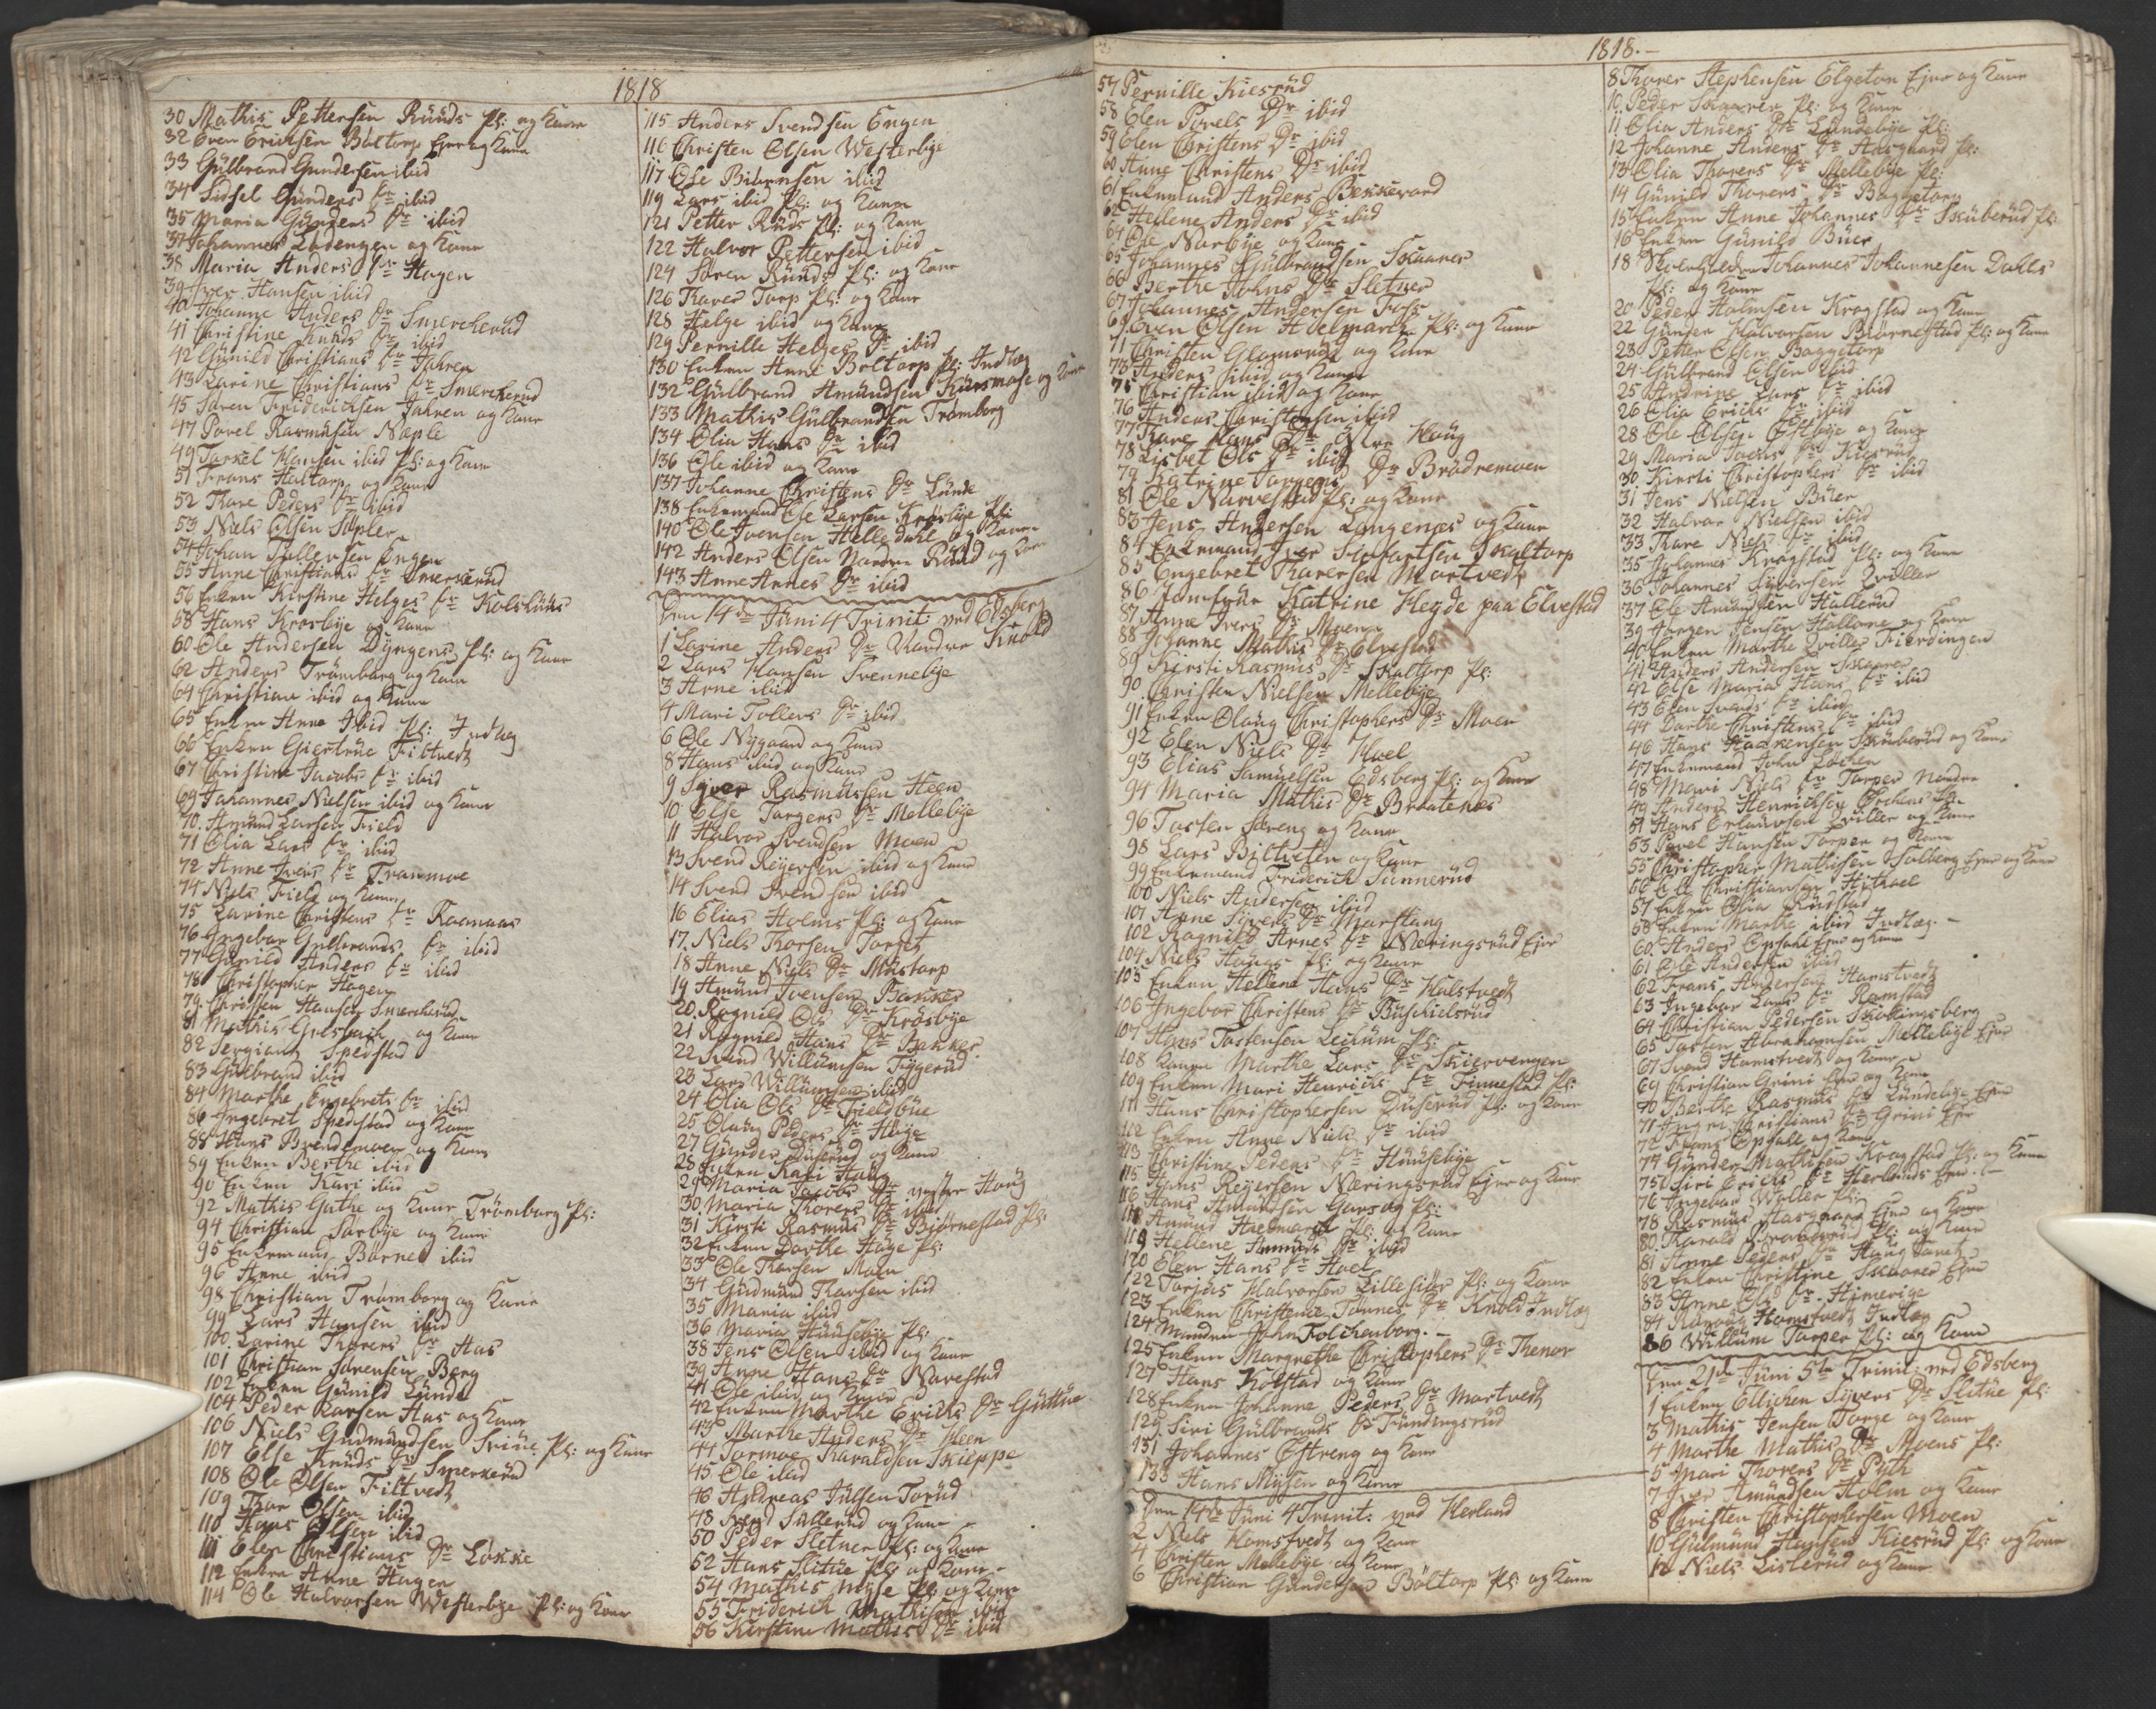 1818
30 Mathis Pettersen Rüüds Pl: og Kone
32 Even Erichsen Böltorp Ejer og Kone
33 Gülbrand Gundersen ibid
34 Sidsel Günders Dr ibid
35 Maria Günders Dr ibid
37 Johannes Ladengen og Kone
38 Maria Anders Dr Hagen
39 Iver Hansen ibid
40 Johanne Anders Dr Smercherüd
41 Christine Knuds Dr ibid
42 Günild Christians Dr Jahren
43 Larine Christians Dr Smercherud
45 Søren Friderichsen Jahren og Kone
47 Povel Rasmüsen Næple
49 Torkel Hansen ibid Pl: og Kone
51 Frans Haltorp og Kone
52 Thore Peders Dr ibid
53 Niels Olsen Söpler
54 Johan Tollevsen Engen
55 Anne Christians Dr Smerkerüd
56 Enken Kirstine Helges Dr Kolslüüs
58 Hans Krosbye og Kone
60 Ole Andersen Dÿngens Pl: og Kone
62 Anders Trömborg og Kone
64 Christian ibid og Kone
65 Enken Anne Ibid Pl: Indlæg
66 Enken Giertrüe Filtvedt
67 Christine Jacobs Dr ibid
69 Johannes Nielsen ibid og Kone
70. Amünd Larsen Field
71 Olia Lars Dr ibid
72 Anne Ivers Dr Tranmoe
74 Niels Field og Kone
75 Larine Christens Dr Raanaas
76 Ingebor Gulbrands Dr ibid
77 Günild Anders Dr ibid
78 Christopher Hagen
79 Christen Hansen Smercherüd
81 Mathis Gresbach og Kone
82 Sergiant Spedstad
83 Gülbrand ibid
84 Marthe Engebrets Dr ibid
86 Ingebret Spedstad og Kone
88 Hans Brendemoen og Kone
89 Enken Berthe ibid
90 Enken Kari ibid
92 Mathis Guthe og Kone Trömborg Pl:
94 Christian Sørbÿe og Kone
95 Enkemand Børner ibid
96 Anne ibid
98 Christian Trömborg og Kone
99 Lars Hansen ibid
100. Larine Thorers Dr Aas
101 Christian Sørensen Berg
102 Enken Günild Lünde
104 Peder Larsen Aas og Kone
106 Niels Gudmündsen Sriüe Pl: og Kone
107 Else Knüds Dr Smerkerüd
108 Ole Olsen Filtvedt
109 Thor Olsen ibid
110 Hans Olsen ibid
111 Elen Christians Dr Løkke
112 Enken Anne Hagen
114 Ole Halvorsen Westerbÿe Pl: og Kone
115 Anders Svendsen Engen
116 Christen Olsen Westerbÿe
117 Ole Biörnsen ibid
119 Lars ibid Pl: og Konne
121 Petter Rüds Pl: og Kone
122 Halvor Pettersen ibid
124 Søren Rüüds Pl: og Kone
126 Thorer Torp Pl: og Kone
128 Helge ibid og Kone
129 Pernille Helges Dr ibid
130 Enken Anne Boltorp Pl: Indlæg
132 Gülbrand Amündsen Kürsmose og Kone
133 Mathis Gülbrandsen Tromborg
134 Olia Hans Dr ibid
136 Ole ibid og Kone
137 Johanne Christens Dr Lünde
138 Enkemand Ole Larsen Krösbÿe Pl:
140 Ole Ivensen Helledahl og Kone
142 Anders Olsen Nordre Rüüd og Kone
143 Anne Annes Dr ibid
Den 14de Juni 4 Trinit ved Edsberg
1 Larine Anders Dr Nordre Knold
2 Lars Hansen Svennebÿe
3 Arne ibid
4 Mari Tollevs Dr ibid
6 Ole Nÿgaard og Kone
8 Hans ibid og Kone
9 Siver Rasmüssen Heen
10 Else Torgers Dr Mellebÿe
11 Halvor Svendsen Moen
13 Svend Reÿersen ibid og Kone
14 Svend Svendsen ibid
16 Elias Holms Pl: og Kone
17. Niels Korsen Torget
18 Anne Niels Dr Müstorp
19 Amünd Ivensen Bakker
20. Ragnild Ols Dr Krosbÿe
21 Ragnild Hans Dr Bakker
22 Svend Willümsen Tÿggerüd
23 Lars Willümsen ibid
24 Olia Ols Dr Fieldbüe
25 Olaug Peders Dr Høÿe
27 Günder Düserud og Kone
28 Enken Kari Haug
29 Maria Jacobs Dr vestre Houg
30. Maria Thorers Dr ibid
31 Kirsti Rasmus Dr Biørnestad Pl:
32 Enken Dorthe Høÿe Pl:
33 Ole Thorsen Moen
34 Güdmünd Thorsen ibid
35 Maria ibid
36 Maria Hüüsebÿe Pl:
38 Jens Olsen ibid og Kone
39 Anne Hans Dr Navestad
41 Ole ibid og Kone
42 Enken Marthe Erichs Dr Güttüe
43 Marthe Anders Dr Heen
44 Tormoe Haraldsen Skieppe
45 Ole ibid
46 Andreas Jülsen Torüd
48 Svend Süllerüd og Kone
50 Peder Sletner Pl: og Kone
52 Hans Slitüe Pl: og Kone
54 Mathis Mÿse Pl: og Kone
55 Friderich Mathisen ibid
56 Kirstine Mathis Dr ibid
1818.-
57 Pernille Kiesrüd
58 Elen Povels Dr ibid
59 Elen Christens Dr ibid
60. Anne Christens Dr ibid
61 Enkemand Anders Bekkevard
62 Hellene Anders Dr ibid
64 Ole Norbÿe og Kone
65 Johannes Gülbrandsen Skaarer
66 Berthe Johns Dr Sletner
67 Johannes Andersen Foss
69 Even Olsen Hoelmarch Pl: og Kone
71 Christen Glomsrud og Kone
73 Anders ibid og Kone
75 Christian ibid og Kone
76 Anders Christensen ibid
77 Thore Hans Dr Haug
78 Lisbet Ols Dr ibid
79 Katrine Torgers Dr Bradremoen
81 Ole Narvestad Pl: og Kone
83 Jens Andersen Langenæs og Kone
84 Enkemand Iver Skaltorp
85 Engebret Thoversen Martvedt
86 Jomfrue Katrine Heÿde paa Elvestad
87 Anne Ivers Dr Moen
88 Johanne Mathis Dr Elvestad
89 Kirsti Rasmus Dr Skaltorp Pl:
90 Christen Nielsen Mellebÿe
91 Enken Olaug Christophers Dr Moen
92 Elen Niels Dr Hoel
93 Elias Samüelsen Edsberg Pl: og Kone
94 Maria Mathis Dr Braatenes
96 Torsten Søreng og Kone
98 Lars Biltvéten og Kone
99 Enkemand Friderich Sünnerüd
100 Niels Andersen ibid
101 Anne Sÿvers Dr Marstang
102 Ragnild Arnes Dr Næringsrüd Ejer
104 Niels Haugs Pl: og Kone
105 Enken Hellene Hans Dr Halstvedt
106 Ingebor Christens Dr Büschielsrüd
107 Hans Torstensen Leküm Pl:
108 Konen Marthe Lars Dr Skiervengen
109 Enken Mari Henrichs Dr Finnestad Pl:
111 Hans Christophersen Düserüd Pl: og Kone
112 Enken Anne Niels Dr ibid
113 Christine Peders Dr Hüüsebÿe
115 Hans Reÿersen Næringsrud Ejer og Kone
116 Hans Amundsen Gaasøe Pl:
118 Amünd Hoelmarch Pl: og Kone
119 Hellene Amünds Dr ibid
120 Elen Hans Dr Hoel
122 Torjüs Halvorsen Lillesÿer Pl: og Kone
123 Enken Christense Tonnes Dr Knold Indlæg
124 Manden John Folchenborg.-
125 Enken Margrethe Christophers Dr Thenor
127 Hans Kolstad og Kone
128 Enken Johanne Peders Dr Martvedt
129. Siri Gülbrands Dr Fündingsrüd
131 Johannes Østreng og Kone
133 Hans Mÿsen og Kone
Den 14de Juni 4 Trinit: ved Herland
2 Niels Homstvedt og Kone
4 Christen Mellebÿe og Kone
6 Christian Gündersen Böltorp Pl: og Kone
8 Thorer Stephensen Elgetun Ejer og Kone
10. Peder Skaarer Pl: og Kone
11 Olia Anders Dr Lündebÿe Pl:
12 Johanne Anders Dr Aasgaard Pl:
13 Olia Thorers Dr Mellebÿe Pl:
14 Günild Thorers Dr Baggetorp
15 Enken Anne Johannes Dr Sküberüd Pl:
16 Enken Günild Büer
18 Johannes Johannesen Dahles
Pl: og Kone
20 Peder Holmsen Kragstad og Kone
22 Günder Halvorsen Biørnestad Pl: og Kone
23 Petter Olsen Baggetorp
24 Gülbrand Olsen ibid
25 Andrine Lars Dr ibid
26 Olia Erichs Dr ibid
28 Ole Olsen Østbÿe og Kone
29 Maria Jacobs Dr Kiesrüd
30. Kirsti Christophers Dr ibid
31 Jens Nielsen Büer
32 Halvor Nielsen ibid
33 Thore Niels Dr ibid
35 Johannes Kragstad Pl: og Kone
36 Johannes Siversen Qviller
37 Ole Amündsen Hallerüd
39 Jørgen Jensen Hallone og Kone
40 Enken Marthe Qviller Fierdingen
41 Anders Andersen Skaarer
42 Else Maria Hans Dr ibid
43 Elen Svends Dr ibid
44 Dorthe Christens Dr ibid
46 Hans Haakensen Sküberüd og Kone
47 Enkemand John Løken
48 Mari Niels Dr Torper Nordre
49 Anders Henrichsen
51 Hans Erlandsen Qviller og Kone
53 Povel Hansen Torper og Kone
55 Christopher Mathisen Solberg Ejer og Kone
56 Ole Christiansen
57 Enken Olia Rüdstad
58 Enken Marthe ibid Indlæg.-
60. Anders Opsahl Ejer og Kone
61 Ole Andersen ibid
62 Frans Andersen Homstvedt
63 Ingebor Lars Dr Ramstad
64 Christian Pedersen Skollingsberg
65 Torsten Abrahamsen Mellebÿe Ejer
67 Svend Homstvedt og Kone
69 Christian Grini Ejer og Kone
70 Berthe Rasmus Dr Lündebÿe Ejer
71 Inger Christians Dr Grini Ejer
72 Frans Opsall og Kone
74 Günder Mathisen Kragstad Pl: og Kone
75 Siri Erichs Dr Herlands Ejer
76 Ingebor Woller Pl:
78 Rasmus Aasgaard Ejer og Kone
80. Harald Pl: og Kone
81 Anne Peders Dr Haug
82 Enken Christine Skaarer Ejer
83 Anne Ols Dr Himerige
84 Homstvedt Indlæg
86 Willüm Torper Pl: og Kone
Den 21de Juni 5te Trinit: ved Edsberg
1 Enken Ellichen Sivers Dr Slitüe Pl:
3 Mathis Jensen Torge og Kone
4 Marthe Mathis Dr Moens Pl:
5 Mari Thorers Dr Püth
7 Iver Amündsen Holm og Kone
8 Christen Christophersen Moen
10 Gülmünd Hansen Kiesrüd Pl: og Kone
12 Niels Listerüd og Kone